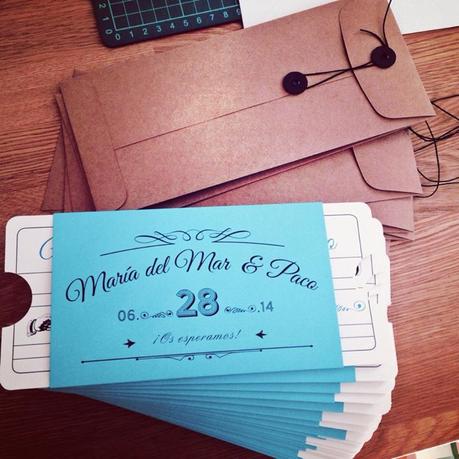 0 1 2 3 4 5 6 7 8 9
María del Mar & Paco
06. 28 .14
¡Os esperamos!